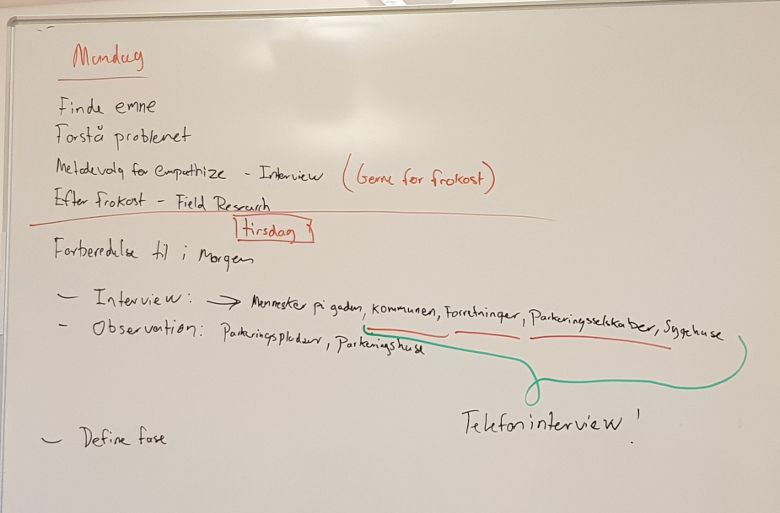 Mandag
Finde emne
Forstå problemet
Metodevalg for empathize - Interview (Gerne før frokost)
Efter frokost - Field Research
tirsdag
Forberedelse til i morgen
- Interview: → Mennesker på gaden, kommunen, Forretninger, Parkeringsselskaber, Sygehuse
- Observation: Parkeringspladser, Parkeringshuse
Telefoninterview!
- Define fase